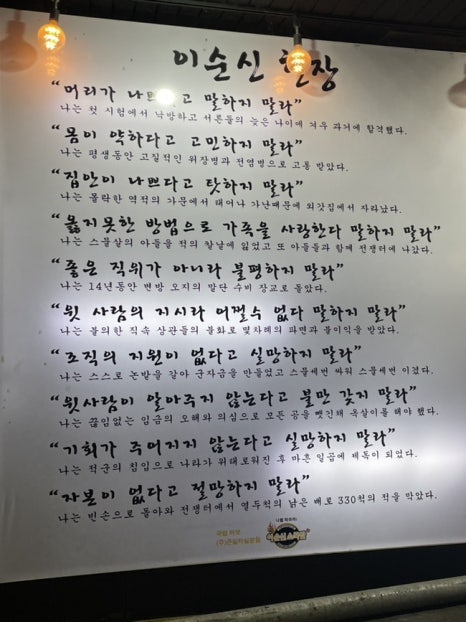 이순신 헌장
“머리가 나쁘다고 말하지 말라”
나는 첫 시험에서 낙방하고 서른둘의 늦은 나이에 겨우 과거에 합격했다.
“몸이 약하다고 고민하지 말라”
나는 평생동안 고질적인 위장병과 전염병으로 고통 받았다.
“집안이 나쁘다고 탓하지 말라”
나는 몰락한 역적의 가문에서 태어나 가난때문에 외갓집에서 자라났다.
“옳지못한 방법으로 가족을 사랑한다 말하지 말라”
나는 스물살의 아들을 적의 칼날에 잃었고 또 아들들과 함께 전쟁터에 나갔다.
“좋은 직위가 아니라 불평하지 말라”
나는 14년동안 변방 오지의 말단 수비 장교로 돌았다.
“윗 사람의 지시라 어쩔수 없다 말하지 말라”
나는 불의한 직속 상관들의 불화로 몇차례의 파면과 불이익을 받았다.
“조직의 지원이 없다고 실망하지 말라”
나는 스스로 논밭을 갈아 군자금을 만들었고 스물세번 싸워 스물세번 이겼다.
“윗사람이 알아주지 않는다고 불만 갖지 말라”
나는 끊임없는 임금의 오해와 의심으로 모든 공을 뺏긴채 옥살이를 해야 했다.
“기회가 주어지지 않는다고 실망하지 말라”
나는 적군의 침입으로 나라가 위태로워진 후 마흔 일곱에 제독이 되었다.
“자본이 없다고 절망하지 말라”
나는 빈손으로 돌아와 전쟁터에서 열두척의 낡은 배로 330척의 적을 막았다.